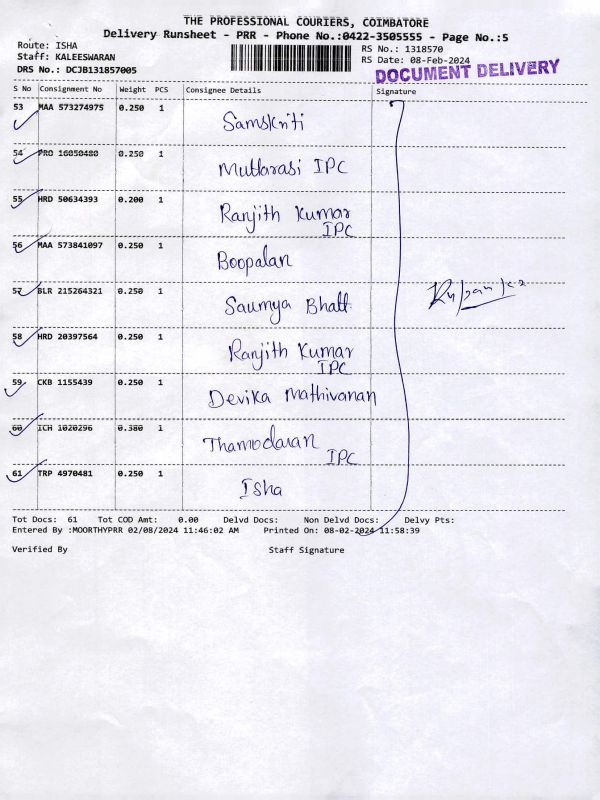 THE PROFESSIONAL COURIERS, COIMBATORE
Delivery Runsheet - PRR - Phone No.:0422-3505555 - Page No.:5
Route: ISHA
RS No.: 1318570
Staff: KALEESWARAN
RS Date: 08-Feb-2024
DRS No.: DCJB131857005
DOCUMENT DELIVERY
S No Consignment No Weight PCS Consignee Details Signature
53 MAA 573274975 0.250 1
Samskriti
54 PRO 16050480 0.250 1
Mutlarasi IPC
55 HRD 50634393 0.200 1
Ranjith Kumar
IPC
56 MAA 573841097 0.250 1
Boopalan
57 BLR 215264321 0.250 1
Saumya Bhatt
58 HRD 20397564 0.250 1
Ranjith Kumar
IPC
59 CKB 1155439 0.250 1
Devika Mathivanan
60 ICH 1020296 0.380 1
Thamodaran
IPC
61 TRP 4970481 0.250 1
Isha
Tot Docs: 61 Tot COD Amt: 0.00 Delvd Docs: Non Delvd Docs: Delvy Pts:
Entered By :MOORTHYPRR 02/08/2024 11:46:02 AM Printed On: 08-02-2024 11:58:39
Verified By Staff Signature